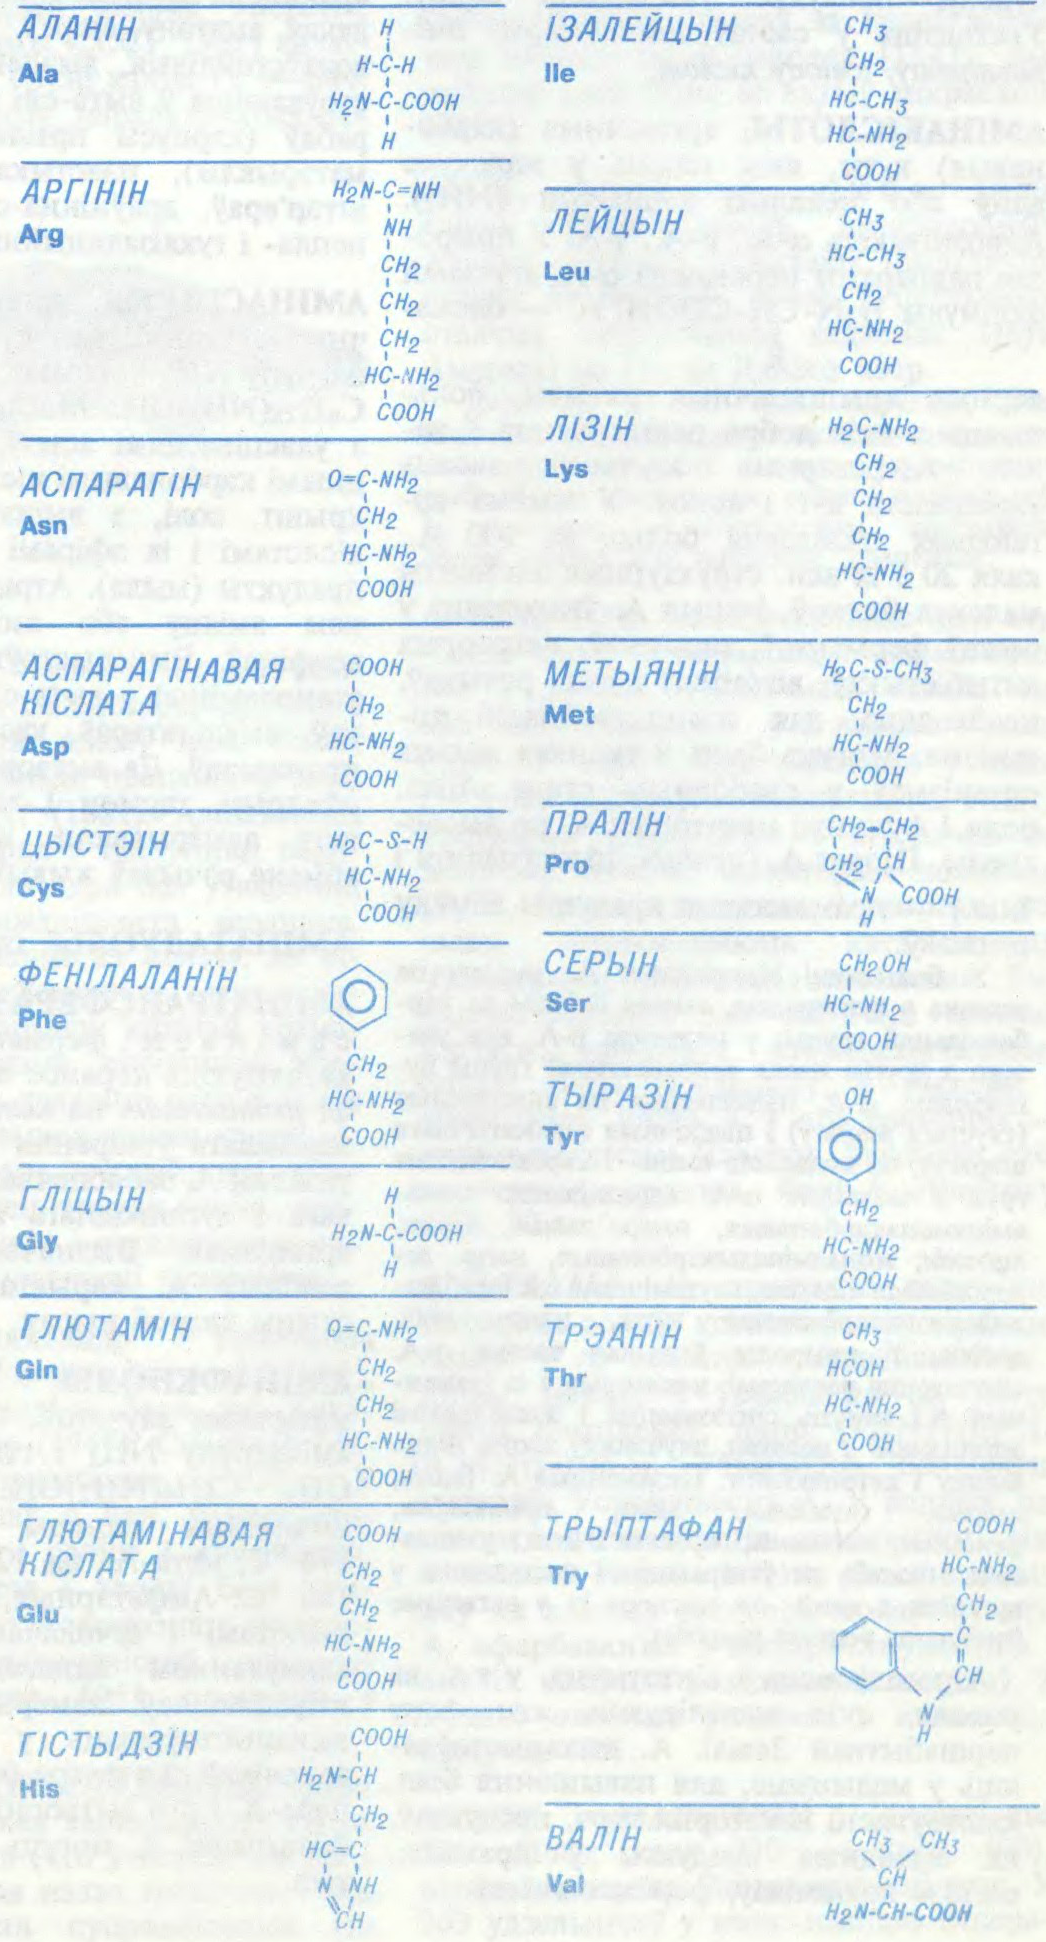 АЛАНІН
Ala
H
H-C-H
H₂N-C-COOH
H
АРГІНІН
Arg
H₂N-C=NH
NH
CH₂
CH₂
CH₂
HC-NH₂
COOH
АСПАРАГІН
Asn
O=C-NH₂
CH₂
HC-NH₂
COOH
АСПАРАГІНАВАЯ
КІСЛАТА
Asp
COOH
CH₂
HC-NH₂
COOH
ЦЫСТЭІН
Cys
H₂C-S-H
HC-NH₂
COOH
ФЕНІЛАЛАНІН
Phe
CH₂
HC-NH₂
COOH
ГЛІЦЫН
Gly
H
H₂N-C-COOH
H
ГЛЮТАМІН
Gln
O=C-NH₂
CH₂
CH₂
HC-NH₂
COOH
ГЛЮТАМІНАВАЯ
КІСЛАТА
Glu
COOH
CH₂
CH₂
HC-NH₂
COOH
ГІСТЫДЗІН
His
COOH
H₂N-CH
CH₂
HC=C
N NH
CH
ІЗАЛЕЙЦЫН
Ile
CH₃
CH₂
HC-CH₃
HC-NH₂
COOH
ЛЕЙЦЫН
Leu
CH₃
HC-CH₃
CH₂
HC-NH₂
COOH
ЛІЗІН
Lys
H₂C-NH₂
CH₂
CH₂
CH₂
HC-NH₂
COOH
МЕТЫЯНІН
Met
H₂C-S-CH₃
CH₂
HC-NH₂
COOH
ПРАЛІН
Pro
CH₂-CH₂
CH₂ CH
N COOH
H
СЕРЫН
Ser
CH₂OH
HC-NH₂
COOH
ТЫРАЗІН
Tyr
OH
CH₂
HC-NH₂
COOH
ТРЭАНІН
Thr
CH₃
HCOH
HC-NH₂
COOH
ТРЫПТАФАН
Try
COOH
HC-NH₂
CH₂
C
CH
N
H
ВАЛІН
Val
CH₃ CH₃
CH
H₂N-CH-COOH